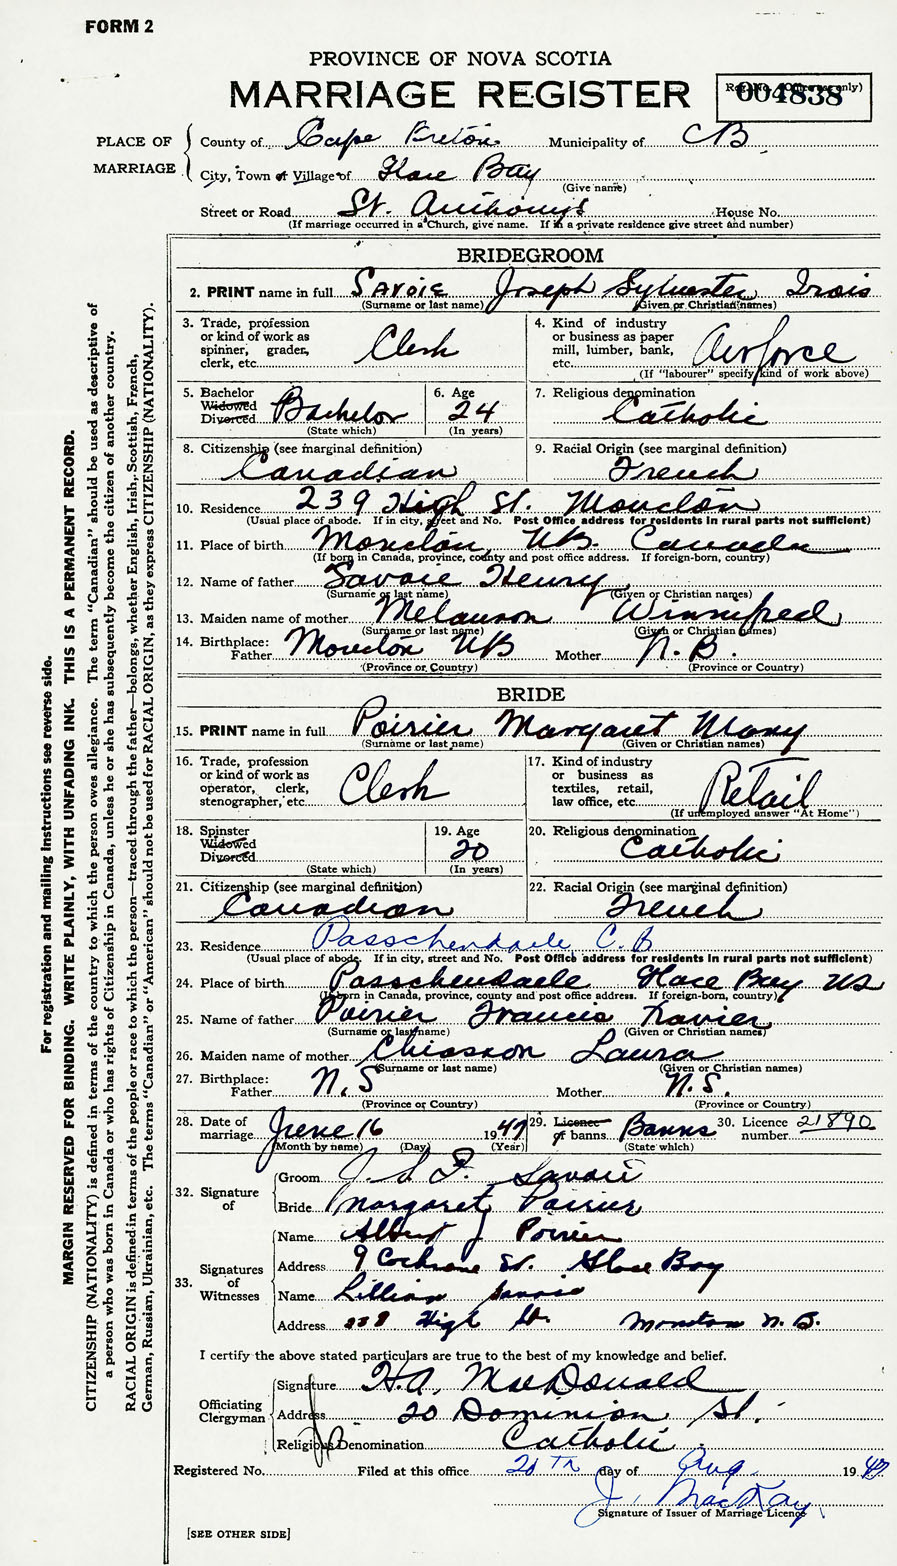 FORM 2
PROVINCE OF NOVA SCOTIA
MARRIAGE REGISTER
004838
PLACE OF MARRIAGE
County of Cape Breton Municipality of CB
City, Town or Village of Glace Bay
(Give name)
Street or Road St. Anthonys House No.
(If marriage occurred in a Church, give name. If in a private residence give street and number)
BRIDEGROOM
2. PRINT name in full Savoie Joseph Sylvester
(Surname or last name) (Given or Christian names)
3. Trade, profession or kind of work as spinner, grader, clerk, etc. Clerk
4. Kind of industry or business as paper mill, lumber, bank, etc. Airforce
(If "labourer" specify kind of work above)
5. Bachelor Widowed Divorced Bachelor
(State which)
6. Age 24
(In years)
7. Religious denomination Catholic
8. Citizenship (see marginal definition) Canadian
9. Racial Origin (see marginal definition) French
10. Residence 239 High St. Moncton
(Usual place of abode. If in city, street and No. Post Office address for residents in rural parts not sufficient)
11. Place of birth Moncton, NB. Canada
(If born in Canada, province, county and post office address. If foreign-born, country)
12. Name of father Savoie Henry
(Surname or last name) (Given or Christian names)
13. Maiden name of mother Melanson Winnifred
(Surname or last name) (Given or Christian names)
14. Birthplace: Father Moncton NB Mother N.B.
(Province or Country) (Province or Country)
BRIDE
15. PRINT name in full Poirier Margaret Mary
(Surname or last name) (Given or Christian names)
16. Trade, profession or kind of work as operator, clerk, stenographer, etc. Clerk
17. Kind of industry or business as textiles, retail, law office, etc. Retail
(If unemployed answer "At Home")
18. Spinster Widowed Divorced
(State which)
19. Age 20
(In years)
20. Religious denomination Catholic
21. Citizenship (see marginal definition) Canadian
22. Racial Origin (see marginal definition) French
23. Residence Passchendaele C.B
(Usual place of abode. If in city, street and No. Post Office address for residents in rural parts not sufficient)
24. Place of birth Passchendaele Glace Bay NS
(If born in Canada, province, county and post office address. If foreign-born, country)
25. Name of father Poirier Francis Xavier
(Surname or last name) (Given or Christian names)
26. Maiden name of mother Chiasson Laura
(Surname or last name) (Given or Christian names)
27. Birthplace: Father N.S Mother N.S.
(Province or Country) (Province or Country)
28. Date of marriage June 16 1947
(Month by name) (Day) (Year)
29. Licence or banns Banns
(State which)
30. Licence number 21890
32. Signature of
Groom J. S. I. Savoie
Bride Margaret Poirier
33. Signatures of Witnesses
Name Albert J Poirier
Address 9 Cochrane St. Glace Bay
Name Lillian Savoie
Address High St. Moncton N.B.
I certify the above stated particulars are true to the best of my knowledge and belief.
Officiating Clergyman
Signature H.A. MacDonald
Address 20 Dominion St.
Religious Denomination Catholic
Registered No. Filed at this office 20th day of Aug. 1947
J. MacKay
Signature of Issuer of Marriage Licence
[SEE OTHER SIDE]
For registration and mailing instructions see reverse side.
MARGIN RESERVED FOR BINDING. WRITE PLAINLY, WITH UNFADING INK. THIS IS A PERMANENT RECORD.
CITIZENSHIP (NATIONALITY) is defined in terms of the country to which the person owes allegiance. The term "Canadian" should be used as descriptive of
a person who was born in Canada or who has rights of Citizenship in Canada, unless he or she has subsequently become the citizen of another country.
RACIAL ORIGIN is defined in terms of the people or race to which the person—traced through the father—belongs, whether English, Irish, Scottish, French,
German, Russian, Ukrainian, etc. The terms "Canadian" or "American" should not be used for RACIAL ORIGIN, as they express CITIZENSHIP (NATIONALITY).